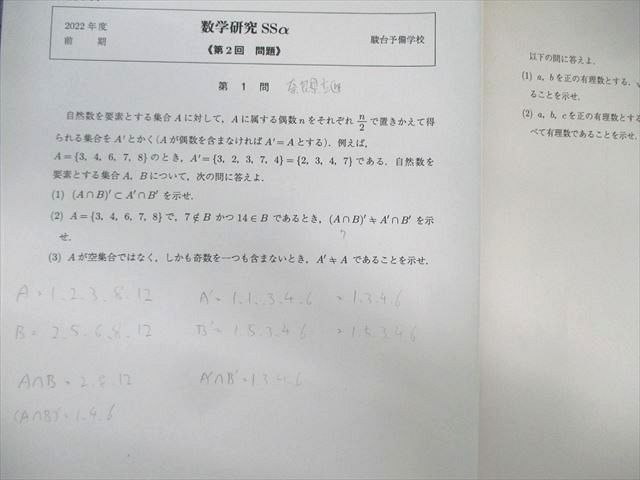 2022年度
前 期
数学研究 SSα
《第2回 問題》
駿台予備学校
第 1 問
自然数を要素とする集合 A に対して，A に属する偶数 n をそれぞれ n/2 で置きかえて得
られる集合を A′ とかく(A が偶数を含まなければ A′=A とする)．例えば，
A={3, 4, 6, 7, 8} のとき，A′={3, 2, 3, 7, 4}={2, 3, 4, 7} である．自然数を
要素とする集合 A，B について，次の問に答えよ．
(1) (A∩B)′⊂A′∩B′ を示せ．
(2) A={3, 4, 6, 7, 8} で，7∉B かつ 14∈B であるとき，(A∩B)′≠A′∩B′ を示
せ．
7
(3) A が空集合ではなく，しかも奇数を一つも含まないとき，A′≠A であることを示せ．
A = 1.2.3.8.12 A′= 1.1.3.4.6 = 1.3.4.6
B = 2.5.6.8.12 B′= 1.5.3.4.6 = 1.5.3.4.6
A∩B = 2.8.12 A′∩B′=1.3.4.6
(A∩B)′=1.4.6
以下の問に答えよ．
(1) a, b を正の有理数とする．
ることを示せ．
(2) a, b, c を正の有理数とする
べて有理数であることを示せ．